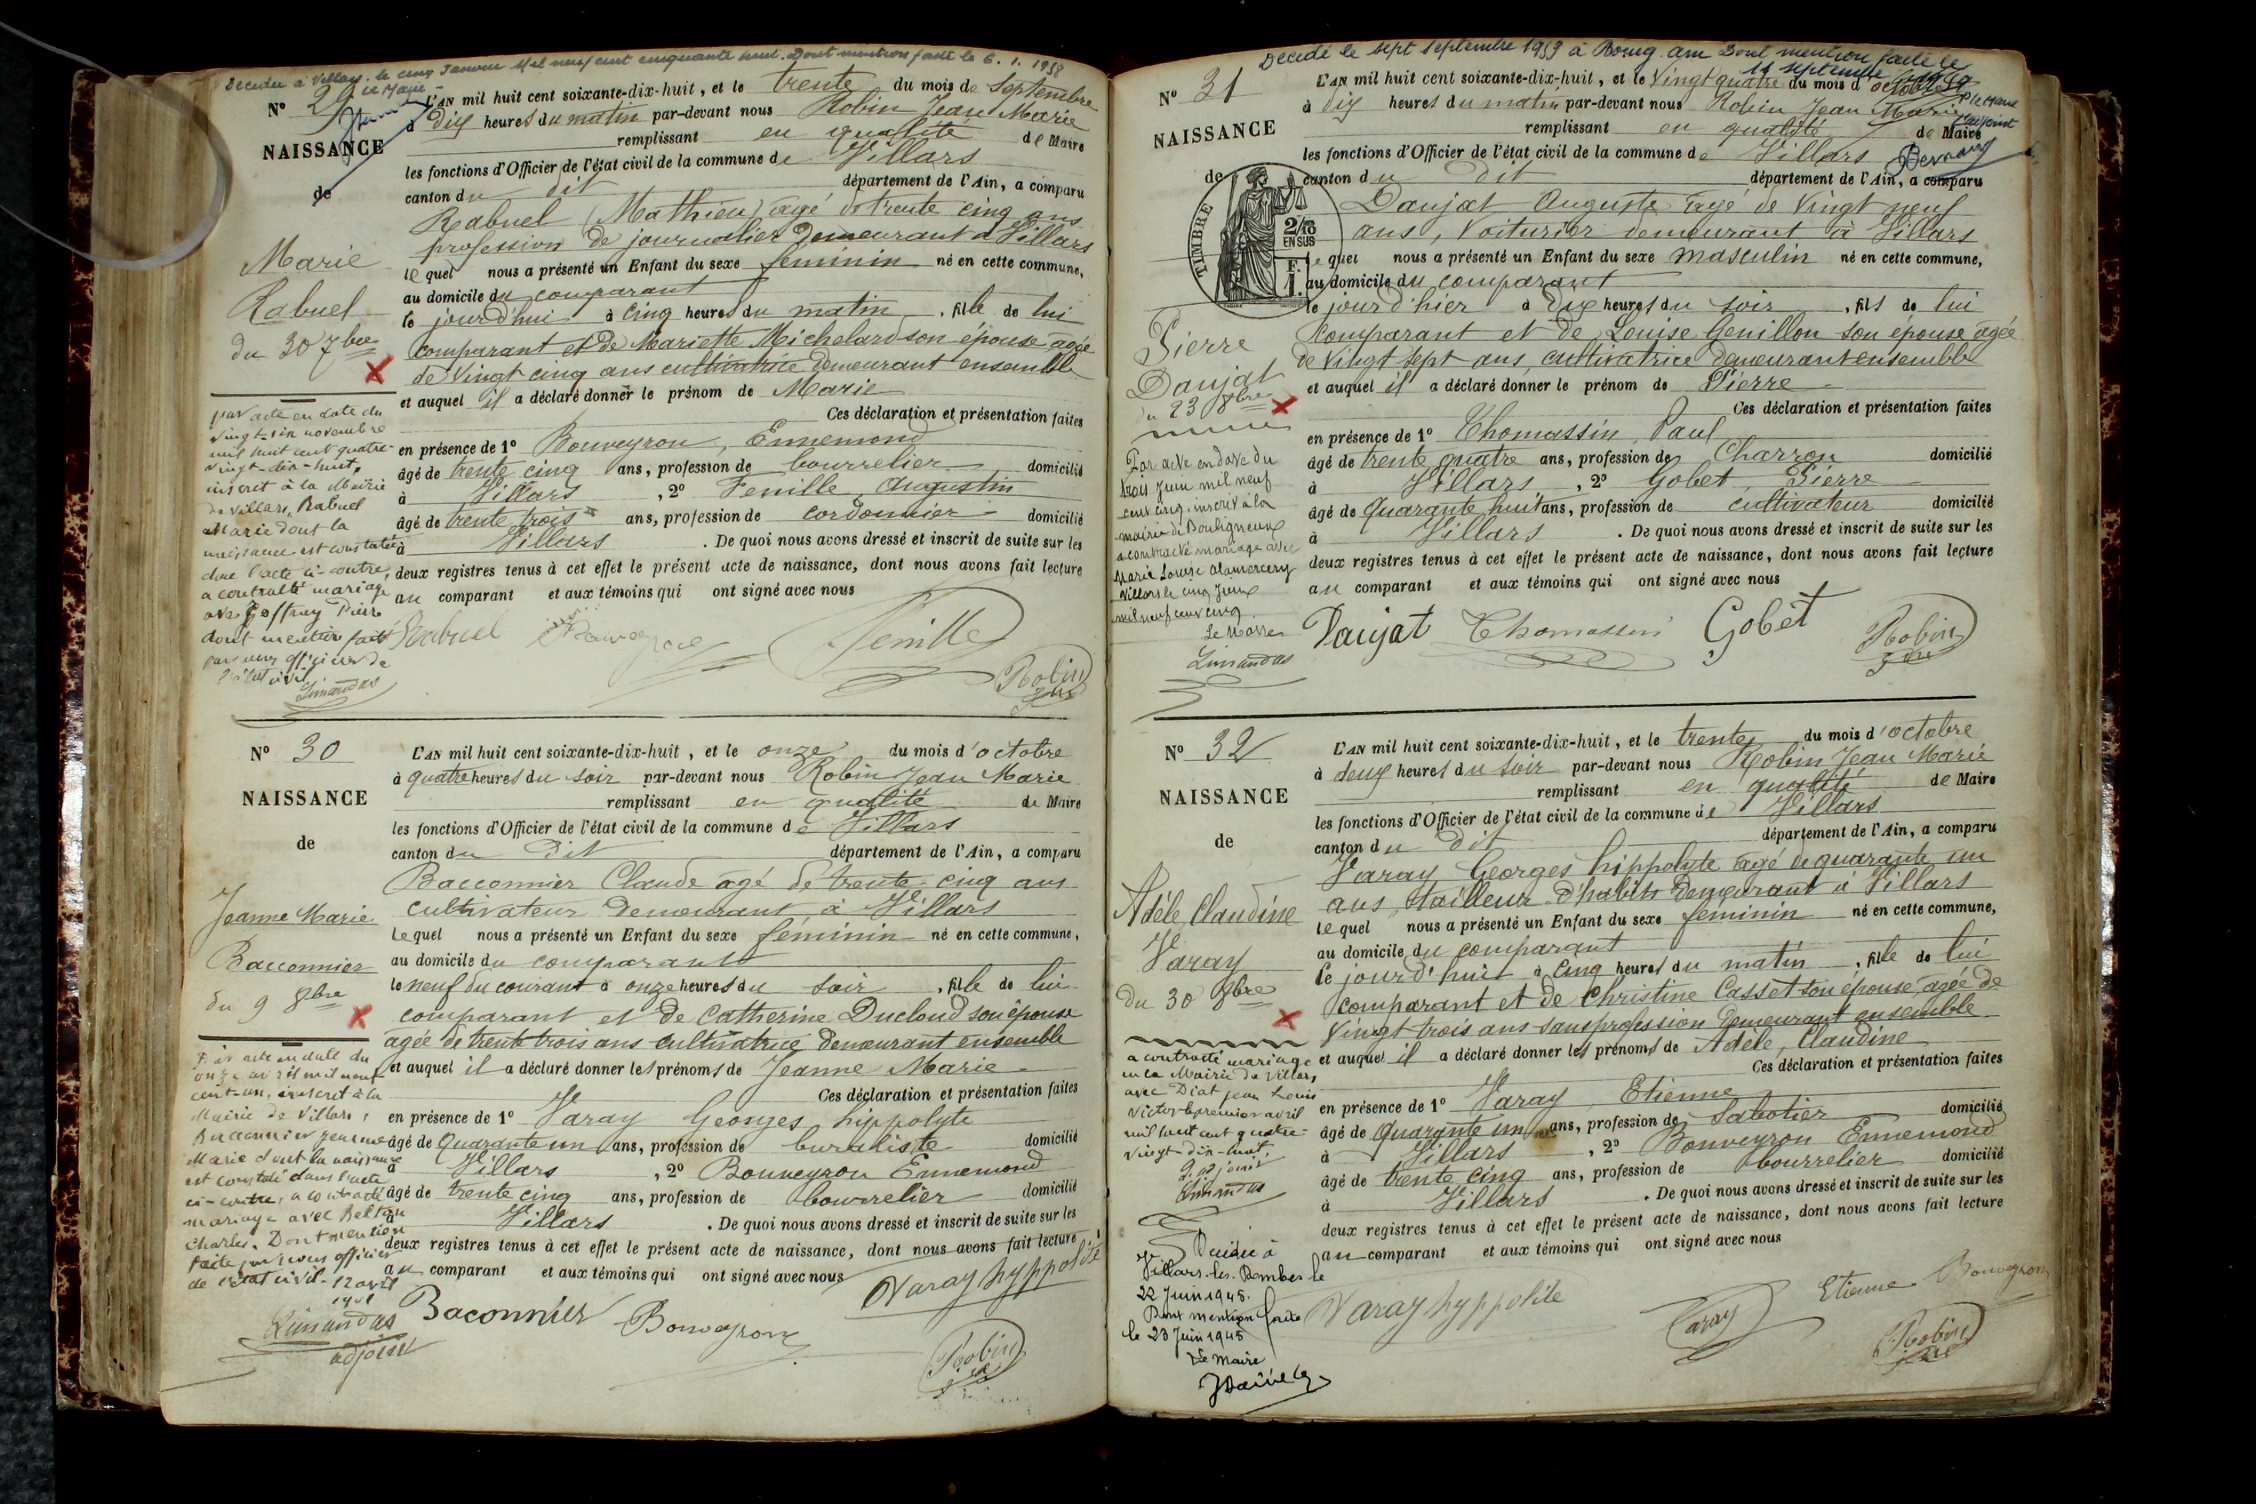 Décédée à Villars le cinq Janvier Mil neuf cent cinquante huit. Dont mention faite le 6. 1. 1958
Le Maire
N° 29
NAISSANCE
de
Marie
Rabuel
du 30 7bre
par acte en date du
vingt-six novembre
mil huit cent quatre-
vingt-dix-huit,
inscrit à la Mairie
de Villars, Rabuel
Marie dont la
naissance est constatée
dans l'acte ci-contre,
a contracté mariage
avec Geoffray Pierre
dont mention faite
par nous officier de
l'état civil
Limandas
L'AN mil huit cent soixante-dix-huit, et le trente du mois de Septembre
à dix heures du matin par-devant nous Robin Jean Marie
remplissant en qualité de Maire
les fonctions d'Officier de l'état civil de la commune de Villars
canton du dit département de l'Ain, a comparu
Rabuel (Mathieu) agé de trente cinq ans
profession de journalier demeurant à Villars
lequel nous a présenté un Enfant du sexe féminin né en cette commune,
au domicile du comparant
le jourd'hui à cinq heures du matin, fille de lui
comparant et de Mariette Michelard son épouse agée
de vingt cinq ans cultivatrice demeurant ensemble
et auquel il a déclaré donner le prénom de Marie
Ces déclaration et présentation faites
en présence de 1° Bouveyron, Ennemond
âgé de trente cinq ans, profession de bourrelier domicilié
à Villars, 2° Fenille, Augustin
âgé de trente trois ans, profession de cordonnier domicilié
à Villars. De quoi nous avons dressé et inscrit de suite sur les
deux registres tenus à cet effet le présent acte de naissance, dont nous avons fait lecture
au comparant et aux témoins qui ont signé avec nous
Rabuel Fenille
Robin
N° 30
NAISSANCE
de
Jeanne Marie
Bacconnier
du 9 8bre
Par acte en date du
onze avril mil neuf
cent-un, inscrit à la
Mairie de Villars,
Bacconnier Jeanne
Marie dont la naissance
est constatée dans l'acte
ci-contre, a contracté
mariage avec
Charles. Dont mention
faite par nous officier
de l'état civil. 12 avril
1901
Limandas
adjoint
L'AN mil huit cent soixante-dix-huit, et le onze du mois d'octobre
à quatre heures du soir par-devant nous Robin Jean Marie
remplissant en qualité de Maire
les fonctions d'Officier de l'état civil de la commune de Villars
canton du dit département de l'Ain, a comparu
Bacconnier Claude agé de trente cinq ans
cultivateur demeurant à Villars
lequel nous a présenté un Enfant du sexe féminin né en cette commune,
au domicile du comparant
le neuf du courant à onze heures du soir, fille de lui
comparant et de Catherine Ducloud son épouse
agée de trente trois ans cultivatrice demeurant ensemble
et auquel il a déclaré donner les prénoms de Jeanne Marie
Ces déclaration et présentation faites
en présence de 1° Varay Georges hippolyte
âgé de Quarante un ans, profession de buraliste domicilié
à Villars, 2° Bouveyron Ennemond
âgé de trente cinq ans, profession de bourrelier domicilié
à Villars. De quoi nous avons dressé et inscrit de suite sur les
deux registres tenus à cet effet le présent acte de naissance, dont nous avons fait lecture
au comparant et aux témoins qui ont signé avec nous
Varay hyppolite
Baconnier Bouveyron
Robin
Décédé le sept septembre 1959 à Bourg Ain Dont mention faite le
11 septembre 1959
N° 31
NAISSANCE
de
TIMBRE
2/10
EN SUS
Pierre
Daujat
du 23 8bre
Par acte en date du
trois Juin mil neuf
cent cinq, inscrit à la
mairie de Bouligneux
a contracté mariage avec
Marie Louise Alamercery
Villars le cinq Juin
mil neuf cent cinq
Le Maire
Limandas
L'AN mil huit cent soixante-dix-huit, et le Vingt quatre du mois d'octobre
à dix heures du matin par-devant nous Robin Jean Marie
remplissant en qualité de Maire
les fonctions d'Officier de l'état civil de la commune de Villars
canton du dit département de l'Ain, a comparu
Daujat Auguste agé de Vingt neuf
ans, Voiturier demeurant à Villars
lequel nous a présenté un Enfant du sexe masculin né en cette commune,
au domicile du comparant
le jour d'hier à dix heures du soir, fils de lui
comparant et de Louise Genillon son épouse agée
de Vingt sept ans, cultivatrice demeurant ensemble
et auquel il a déclaré donner le prénom de Pierre
Ces déclaration et présentation faites
en présence de 1° Thomassin Paul
âgé de trente quatre ans, profession de Charron domicilié
à Villars, 2° Gobet, Pierre
âgé de Quarante huit ans, profession de cultivateur domicilié
à Villars. De quoi nous avons dressé et inscrit de suite sur les
deux registres tenus à cet effet le présent acte de naissance, dont nous avons fait lecture
au comparant et aux témoins qui ont signé avec nous
Daujat Thomassin Gobet Robin
N° 32
NAISSANCE
de
Adéle Claudine
Varay
du 30 8bre
a contracté mariage
en la Mairie de Villars,
avec Diat Jean Louis
Victor le premier avril
mil huit cent quatre-
vingt-dix-huit
Limandas
Décédée à
Villars-les-Dombes le
22 Juin 1945.
Dont mention faite
le 23 Juin 1945
Le Maire
L'AN mil huit cent soixante-dix-huit, et le trente du mois d'octobre
à deux heures du soir par-devant nous Robin Jean Marie
remplissant en qualité de Maire
les fonctions d'Officier de l'état civil de la commune de Villars
canton du dit département de l'Ain, a comparu
Varay Georges hippolyte agé de quarante un
ans, tailleur d'habits demeurant à Villars
lequel nous a présenté un Enfant du sexe féminin né en cette commune,
au domicile du comparant
le jourd'hui à cinq heures du matin, fille de lui
comparant et de Christine Casset son épouse, agée de
Vingt trois ans sans profession demeurant ensemble
et auquel il a déclaré donner les prénoms de Adèle, Claudine
Ces déclaration et présentation faites
en présence de 1° Varay Etienne
âgé de Quarante un ans, profession de Sabotier domicilié
à Villars, 2° Bouveyron Ennemond
âgé de trente cinq ans, profession de bourrelier domicilié
à Villars. De quoi nous avons dressé et inscrit de suite sur les
deux registres tenus à cet effet le présent acte de naissance, dont nous avons fait lecture
au comparant et aux témoins qui ont signé avec nous
Varay hyppolite Varay Etienne Bouveyron
Robin